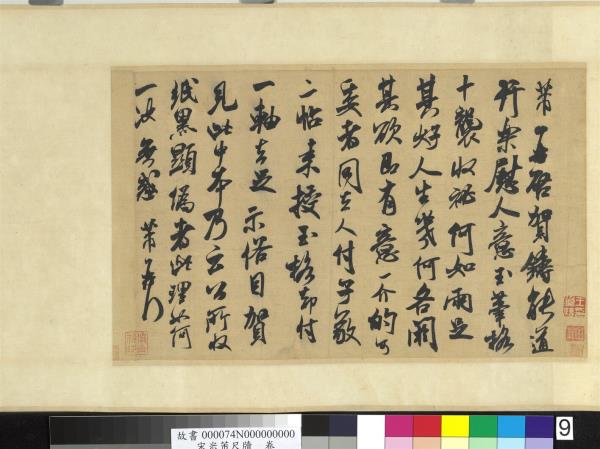 芾頓首啟賀鑄能道
行樂慰人意玉筆格
十襲收秘何如兩足
其好人生幾何各閑
其欲即有意一介的可
委者同去人付子敬
二帖來授玉格却付
一軸去足示俗目賀
見此中本乃云公所收
紙黑顯偽者此理如何
一決無惑芾頓首
故書 000074N000000000
宋米芾尺牘 卷
9